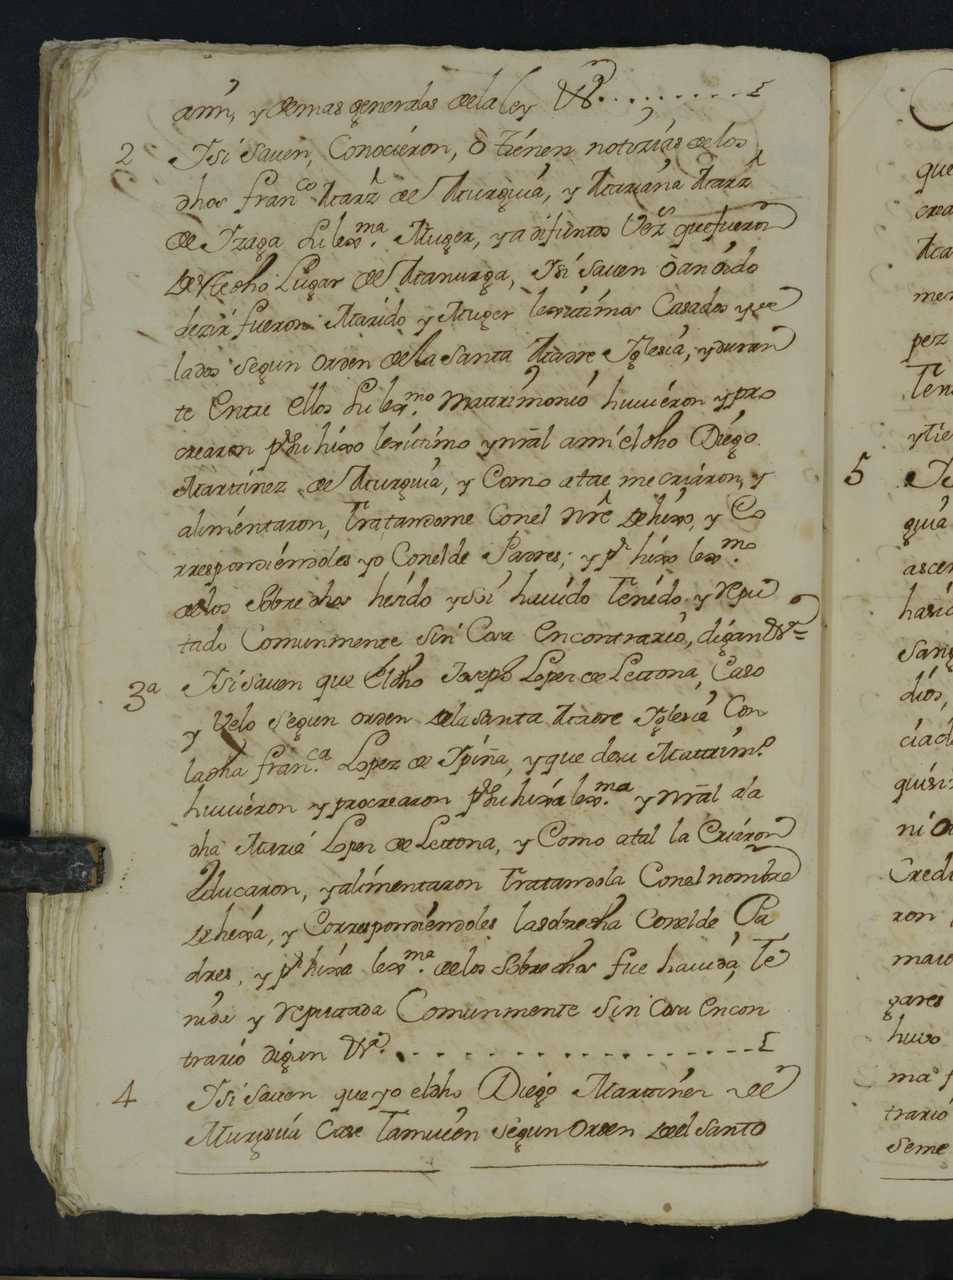 amí, y demas generales dela ley Vª.........
2 Ysi saven, Conocieron, ò tienen notizias delos
dhos franᶜᵒ Marz̃ de Murguia, y Mariana Marz̃
de Yzaga su lexᵐᵃ. Muger, ya difuntos Vezˢ quefueron
deste dho Lugar de Manurga, Ysi saven ò an oido
dezir fueron Marido y Muger lexitimos Casados y ve
lados segun orden dela santa Madre Yglesia, y duran
te Entre Ellos su lexᵐᵒ. Matrimonio huvieron y pro
crearon pʳ su hixo lexitimo y nrãl ami el dho Diego
Martinez de Murguia, y Como atal me criaron, y
alimentaron, tratandome Conel nrẽ de hixo, y Co
rrespondiendoles yo Conelde Padres; y pʳ hixo lexᵐᵒ.
delos Sobredhos he sido y soi havido tenido y repu
tado Comunmente sin Cosa Encontrario, digan Vª=
3ª Ysi saven que El dho Joseph Lopez de Letona, Caso
y Velo segun orden dela santa Madre Yglesia Con
la dha franᶜᵃ. Lopez de Ypiña, y que desu Matrimº
huvieron y procrearon pʳ su hixa lexᵐᵃ. y nrãl ala
dha Maria Lopez de Letona, y Como atal la Criaron
Educaron, y alimentaron tratandola Conel nombre
de hixa, y Correspondiendoles la sobredha Conelde Pa
dres, y pʳ hixa lexᵐᵃ. delos Sobredhos fue havida, te
nida y reputada Comunmente sin Cosa Encon
trario digan Vª.
4 Ysi saven que yo el dho Diego Martinez de
Murguia Case tamvien segun orden de el santo
que
Ma
men
pez
ten
y tie
5 Ys
guia
ascen
havid
sang
dios,
ciad
quisi
ni o
Credi
ron
maio
gares
huvo
ma f
trario
seme